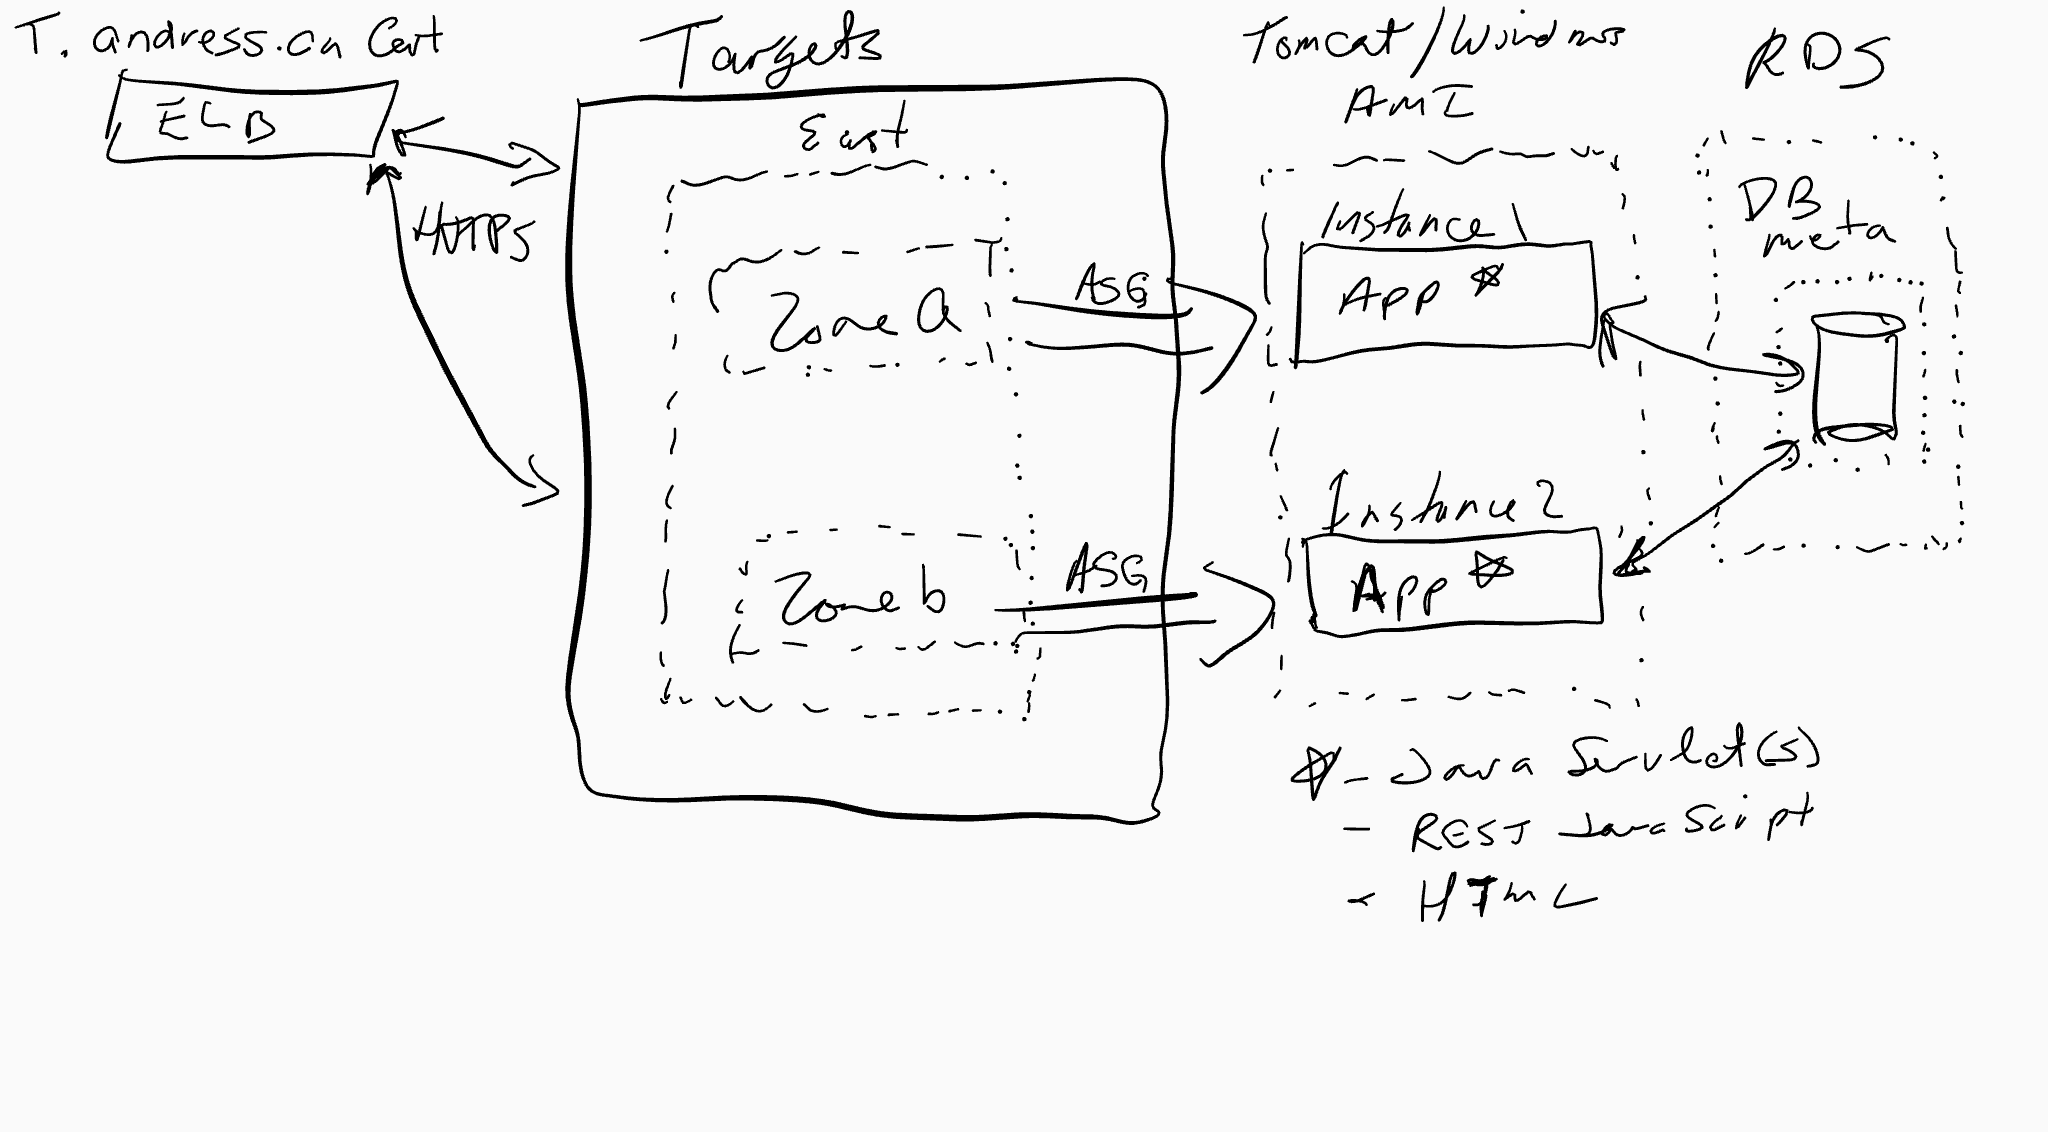 T. andress.on Cert
ELB
HTTPS
Targets
East
Zone a
Zone b
ASG
ASG
Tomcat/Windows
AMI
Instance 1
App ☆
Instance 2
App ☆
RDS
DB
meta
☆ - Java Servlet(s)
- REST JavaScript
- HTML